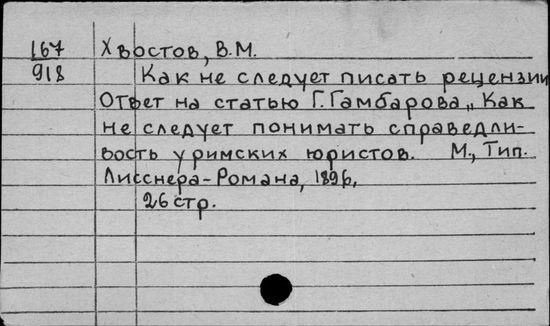 167 Хвостов, В.М.
918 Как не следует писать рецензии
Ответ на статью Г. Гамбарова „Как
не следует понимать справедли-
вость у римских юристов. М., Тип.
Лисснера-Романа, 1896,
26 стр.